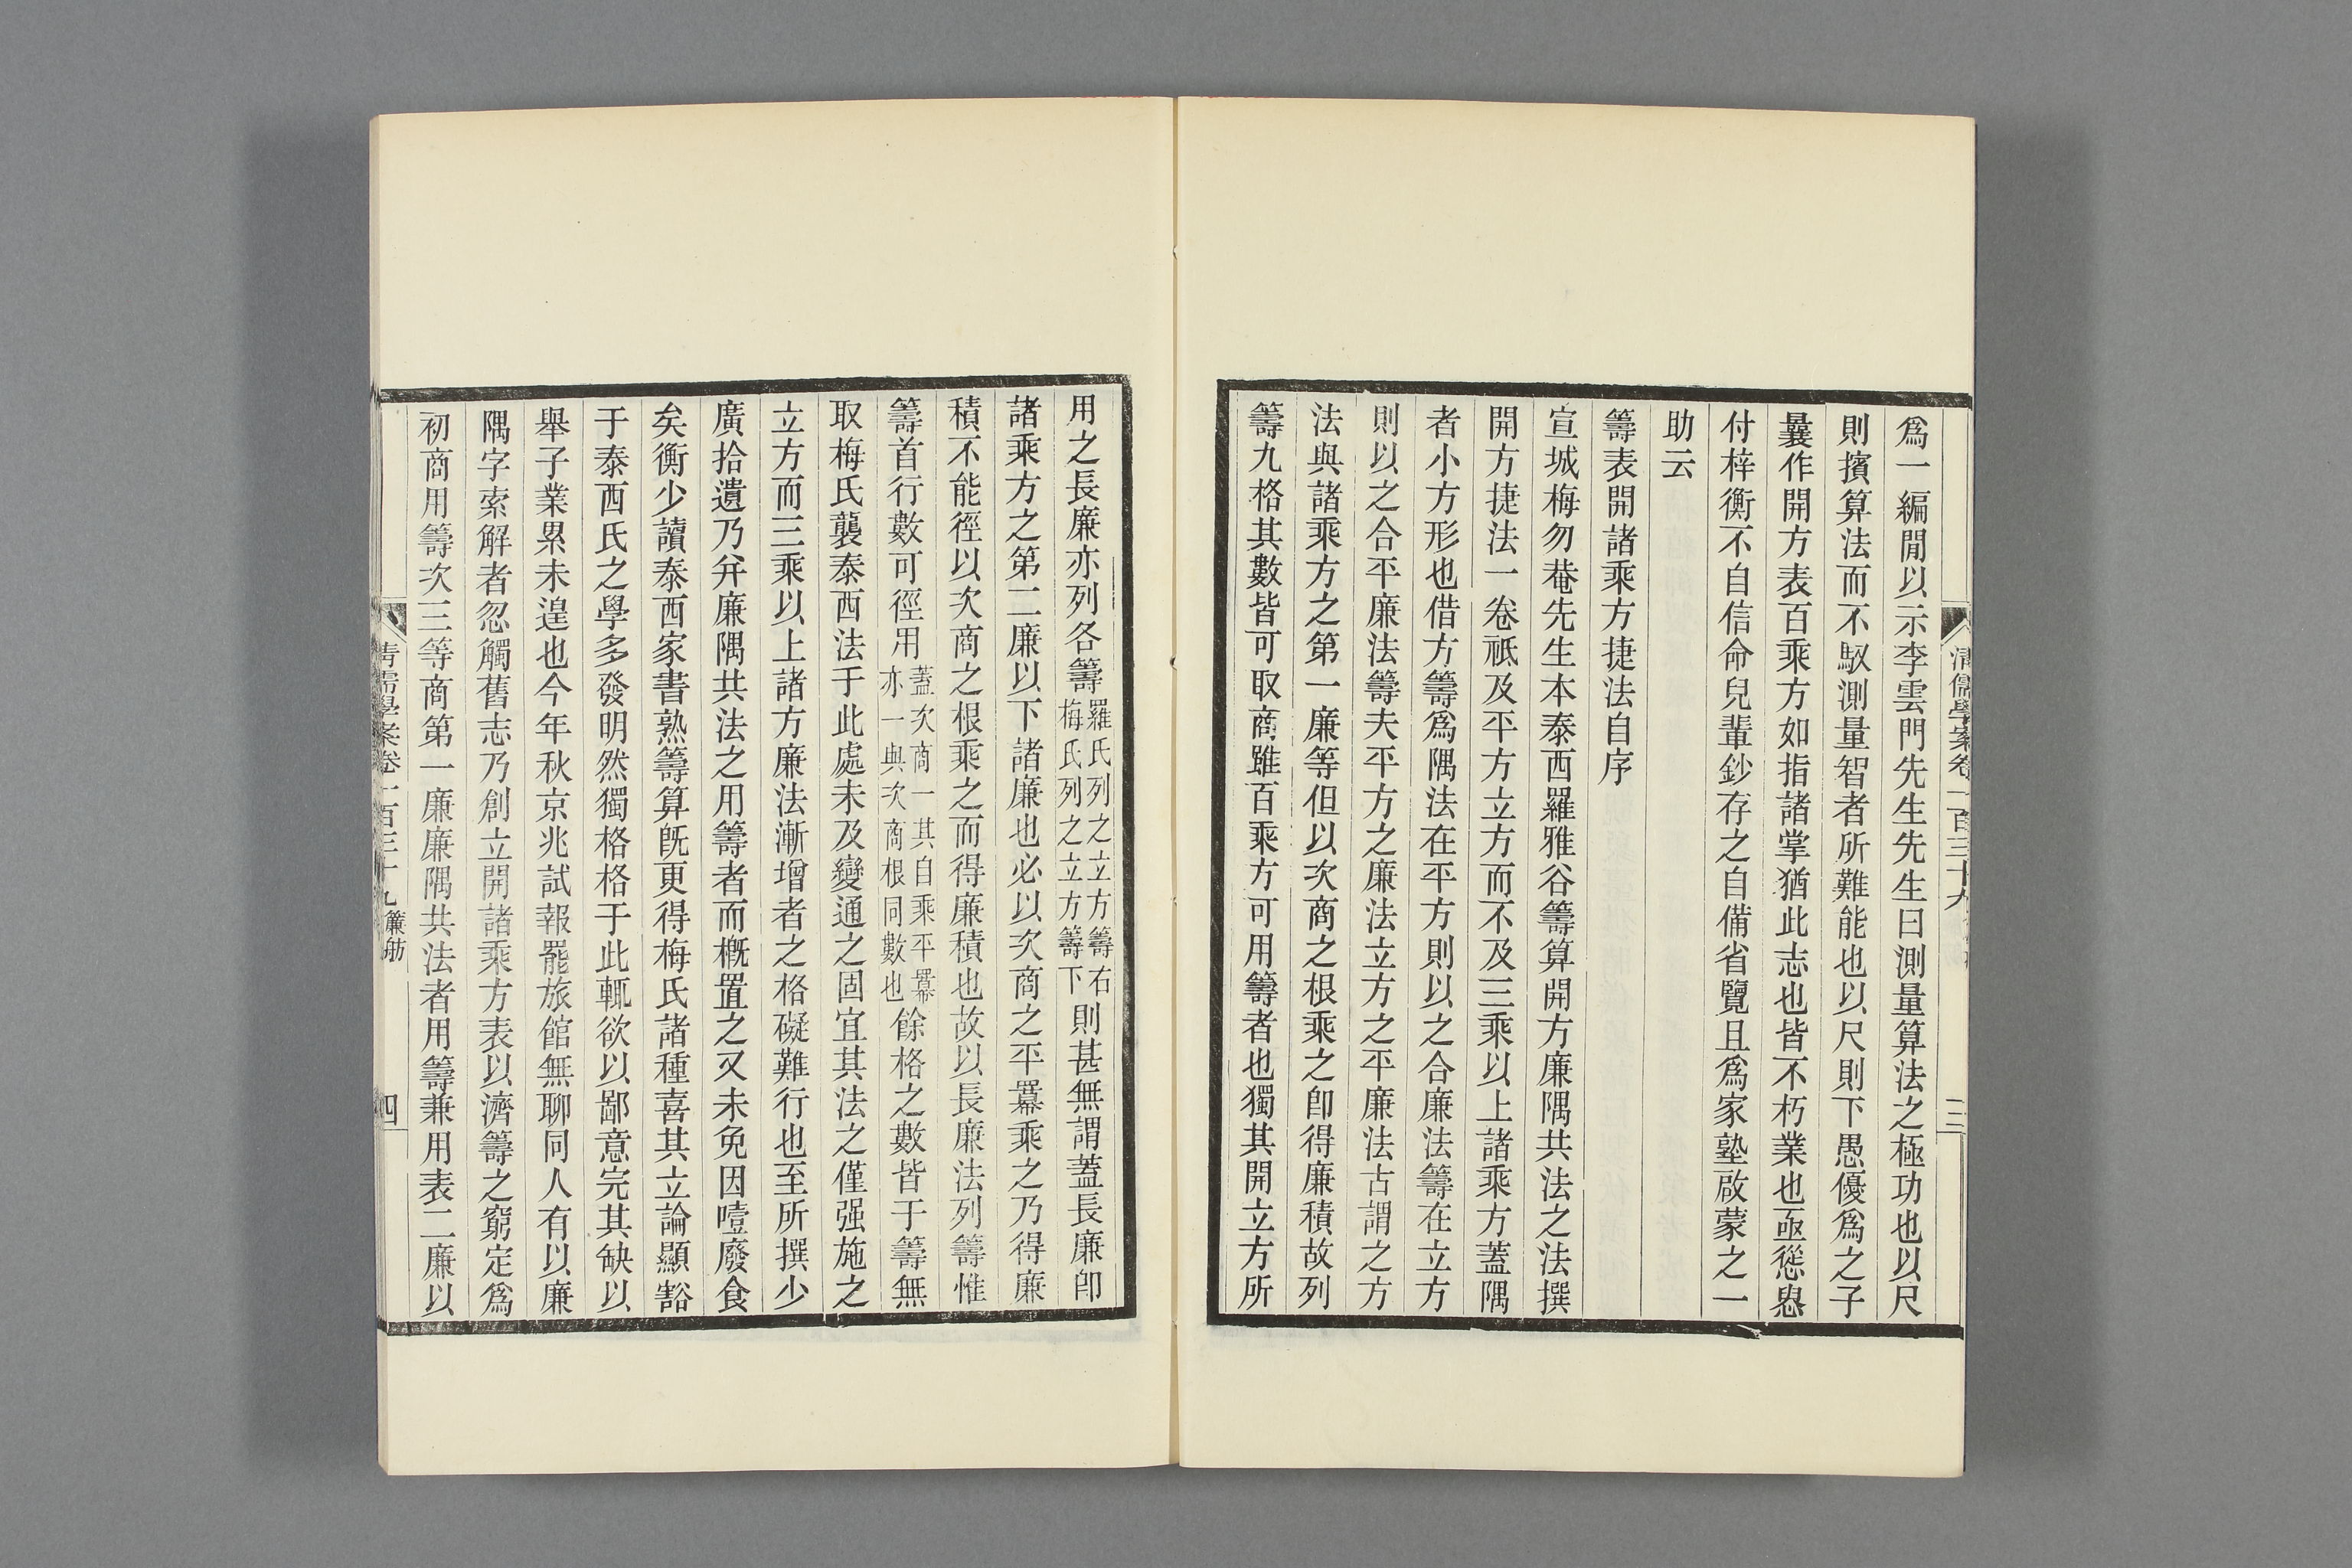 爲一編閒以示李雲門先生先生曰測量算法之極功也以尺
則擯算法而不馭測量智者所難能也以尺則下愚優爲之子
曩作開方表百乘方如指諸掌猶此志也皆不朽業也亟慫恿
付梓衡不自信命兒輩鈔存之自備省覽且爲家塾啟蒙之一
助云
籌表開諸乘方捷法自序
宣城梅勿菴先生本泰西羅雅谷籌算開方廉隅共法之法撰
開方捷法一卷祇及平方立方而不及三乘以上諸乘方蓋隅
者小方形也借方籌爲隅法在平方則以之合廉法籌在立方
則以之合平廉法籌夫平方之廉法立方之平廉法古謂之方
法與諸乘方之第一廉等但以次商之根乘之卽得廉積故列
籌九格其數皆可取商雖百乘方可用籌者也獨其開立方所
清儒學案卷一百三十九
三
用之長廉亦列各籌羅氏列之立方籌右梅氏列之立方籌下則甚無謂蓋長廉卽
諸乘方之第二廉以下諸廉也必以次商之平羃乘之乃得廉
積不能徑以次商之根乘之而得廉積也故以長廉法列籌惟
籌首行數可徑用蓋次商一其自乘平羃亦一與次商根同數也餘格之數皆于籌無
取梅氏襲泰西法于此處未及變通之固宜其法之僅强施之
立方而三乘以上諸方廉法漸增者之格礙難行也至所撰少
廣拾遺乃弃廉隅共法之用籌者而槪置之又未免因噎廢食
矣衡少讀泰西家書熟籌算旣更得梅氏諸種喜其立論顯豁
于泰西氏之學多發明然獨格格于此輒欲以鄙意完其缺以
舉子業累未遑也今年秋京兆試報罷旅館無聊同人有以廉
隅字索解者忽觸舊志乃創立開諸乘方表以濟籌之窮定爲
初商用籌次三等商第一廉廉隅共法者用籌兼用表二廉以
清儒學案卷一百三十九 簾舫
四